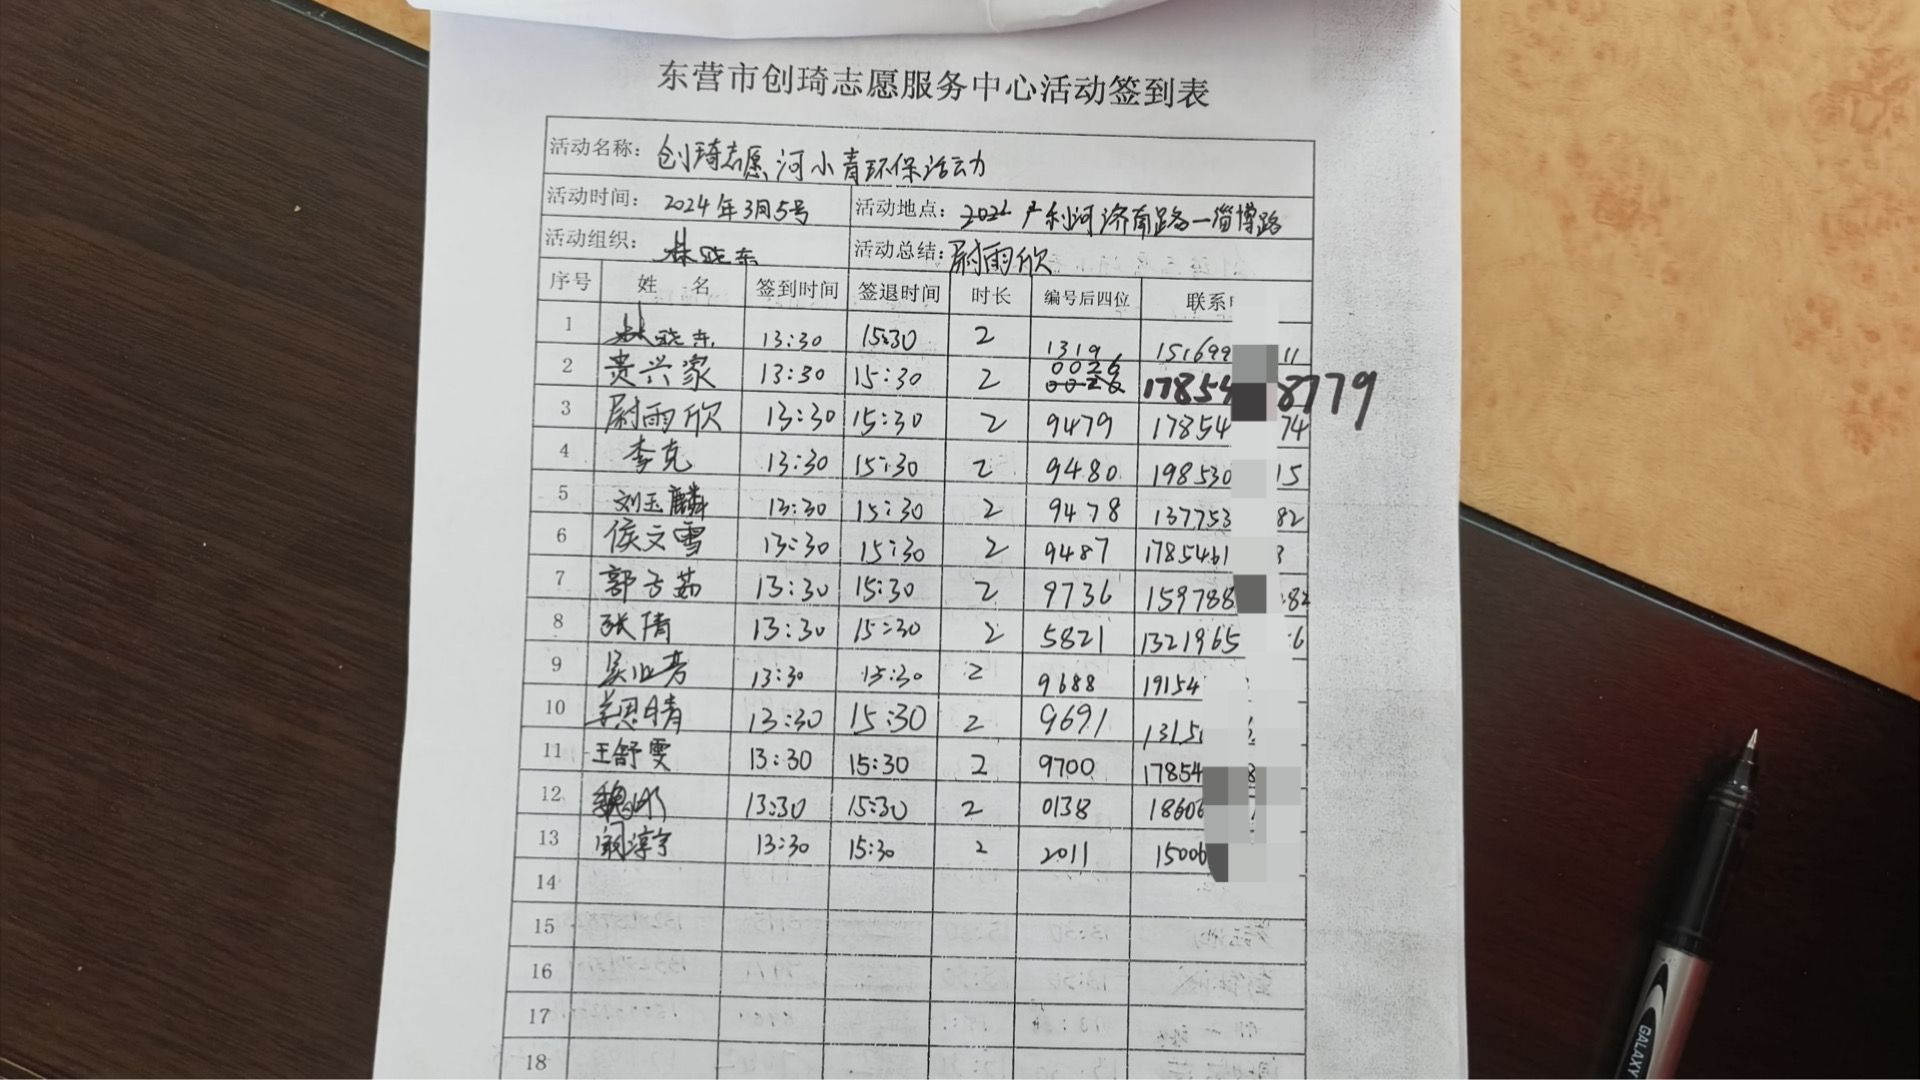 东营市创琦志愿服务中心活动签到表
活动名称: 创琦志愿河小青环保活动
活动时间: 2024年3月5号 活动地点: 广利河济南路一淄博路
活动组织: 林晓东 活动总结: 尉雨欣
序号 姓 名 签到时间 签退时间 时长 编号后四位 联系
1 林晓东 13:30 15:30 2 1319 151699 11
2 贵兴家 13:30 15:30 2 0026 0026 17854 8779
3 尉雨欣 13:30 15:30 2 9479 17854 74
4 李克 13:30 15:30 2 9480 198530 15
5 刘玉麟 13:30 15:30 2 9478 137753 82
6 侯文雪 13:30 15:30 2 9487 1785461 3
7 郭子茹 13:30 15:30 2 9736 159788 82
8 张倩 13:30 15:30 2 5821 1321965 6
9 13:30 15:30 2 9688 19154
10 姜思晴 13:30 15:30 2 9691 1315
11 王舒雯 13:30 15:30 2 9700 17854 8
12 魏 13:30 15:30 2 0138 18606
13 阚淳宇 13:30 15:30 2 2011 15006
14
15
16
17
18
GALAXY